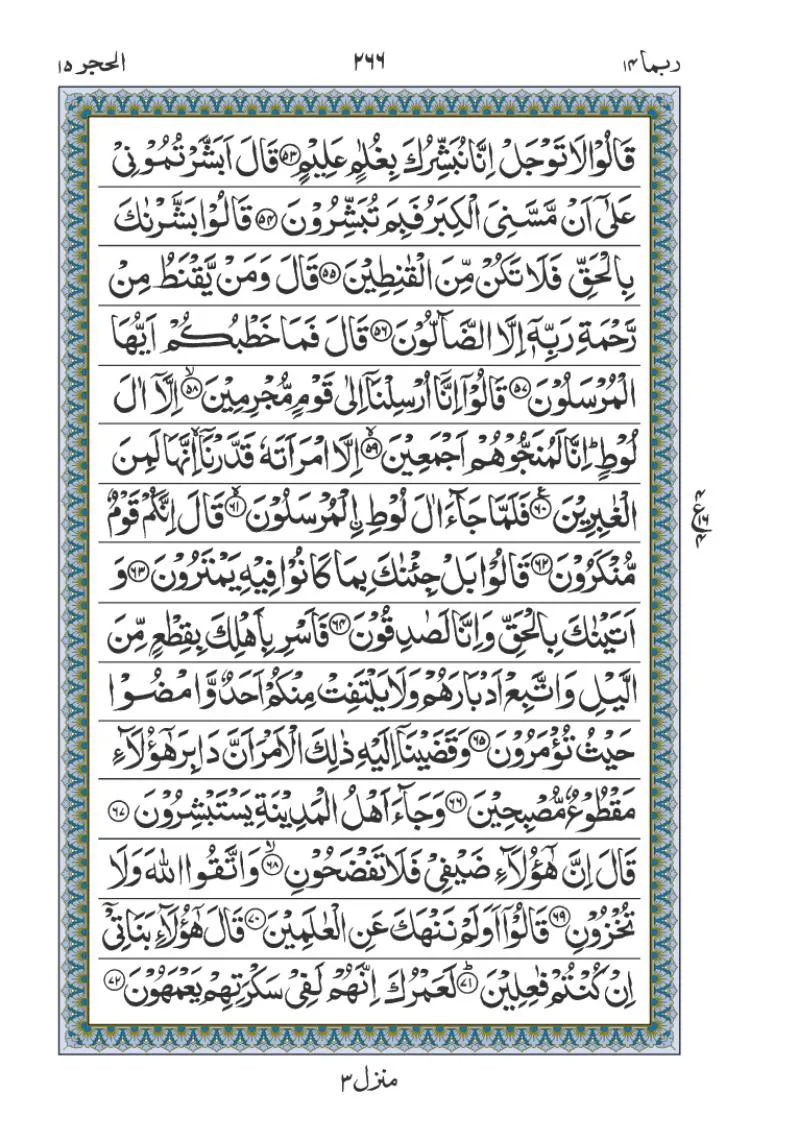 ربما ١٤ ٢٦٦ الحجر ١٥
قَالُوْا لَا تَوْجَلْ اِنَّا نُبَشِّرُكَ بِغُلٰمٍ عَلِيْمٍ ﴿۵۳﴾ قَالَ اَبَشَّرْتُمُوْنِیْ
عَلٰۤی اَنْ مَّسَّنِیَ الْكِبَرُ فَبِمَ تُبَشِّرُوْنَ ﴿۵۴﴾ قَالُوْا بَشَّرْنٰكَ
بِالْحَقِّ فَلَا تَكُنْ مِّنَ الْقٰنِطِيْنَ ﴿۵۵﴾ قَالَ وَمَنْ يَّقْنَطُ مِنْ
رَّحْمَةِ رَبِّهٖۤ اِلَّا الضَّآلُّوْنَ ﴿۵۶﴾ قَالَ فَمَا خَطْبُكُمْ اَيُّهَا
الْمُرْسَلُوْنَ ﴿۵۷﴾ قَالُوْۤا اِنَّاۤ اُرْسِلْنَاۤ اِلٰی قَوْمٍ مُّجْرِمِيْنَ ﴿۵۸﴾ۙ اِلَّاۤ اٰلَ
لُوْطٍ ؕ اِنَّا لَمُنَجُّوْهُمْ اَجْمَعِيْنَ ﴿۵۹﴾ۙ اِلَّا امْرَاَتَهٗ قَدَّرْنَاۤ ۙ اِنَّهَا لَمِنَ
الْغٰبِرِيْنَ ﴿۶۰﴾ۧ فَلَمَّا جَآءَ اٰلَ لُوْطِ ۣالْمُرْسَلُوْنَ ﴿۶۱﴾ۙ قَالَ اِنَّكُمْ قَوْمٌ
مُّنْكَرُوْنَ ﴿۶۲﴾ قَالُوْا بَلْ جِئْنٰكَ بِمَا كَانُوْا فِيْهِ يَمْتَرُوْنَ ﴿۶۳﴾ وَ
اَتَيْنٰكَ بِالْحَقِّ وَاِنَّا لَصٰدِقُوْنَ ﴿۶۴﴾ فَاَسْرِ بِاَهْلِكَ بِقِطْعٍ مِّنَ
الَّيْلِ وَاتَّبِعْ اَدْبَارَهُمْ وَلَا يَلْتَفِتْ مِنْكُمْ اَحَدٌ وَّامْضُوْا
حَيْثُ تُؤْمَرُوْنَ ﴿۶۵﴾ وَقَضَيْنَاۤ اِلَيْهِ ذٰلِكَ الْاَمْرَ اَنَّ دَابِرَ هٰۤؤُلَآءِ
مَقْطُوْعٌ مُّصْبِحِيْنَ ﴿۶۶﴾ وَجَآءَ اَهْلُ الْمَدِيْنَةِ يَسْتَبْشِرُوْنَ ﴿۶۷﴾
قَالَ اِنَّ هٰۤؤُلَآءِ ضَيْفِیْ فَلَا تَفْضَحُوْنِ ﴿۶۸﴾ۙ وَاتَّقُوا اللّٰهَ وَلَا
تُخْزُوْنِ ﴿۶۹﴾ قَالُوْۤا اَوَلَمْ نَنْهَكَ عَنِ الْعٰلَمِيْنَ ﴿۷۰﴾ قَالَ هٰۤؤُلَآءِ بَنَاتِیْۤ
اِنْ كُنْتُمْ فٰعِلِيْنَ ﴿۷۱﴾ؕ لَعَمْرُكَ اِنَّهُمْ لَفِیْ سَكْرَتِهِمْ يَعْمَهُوْنَ ﴿۷۲﴾
منزل ٣